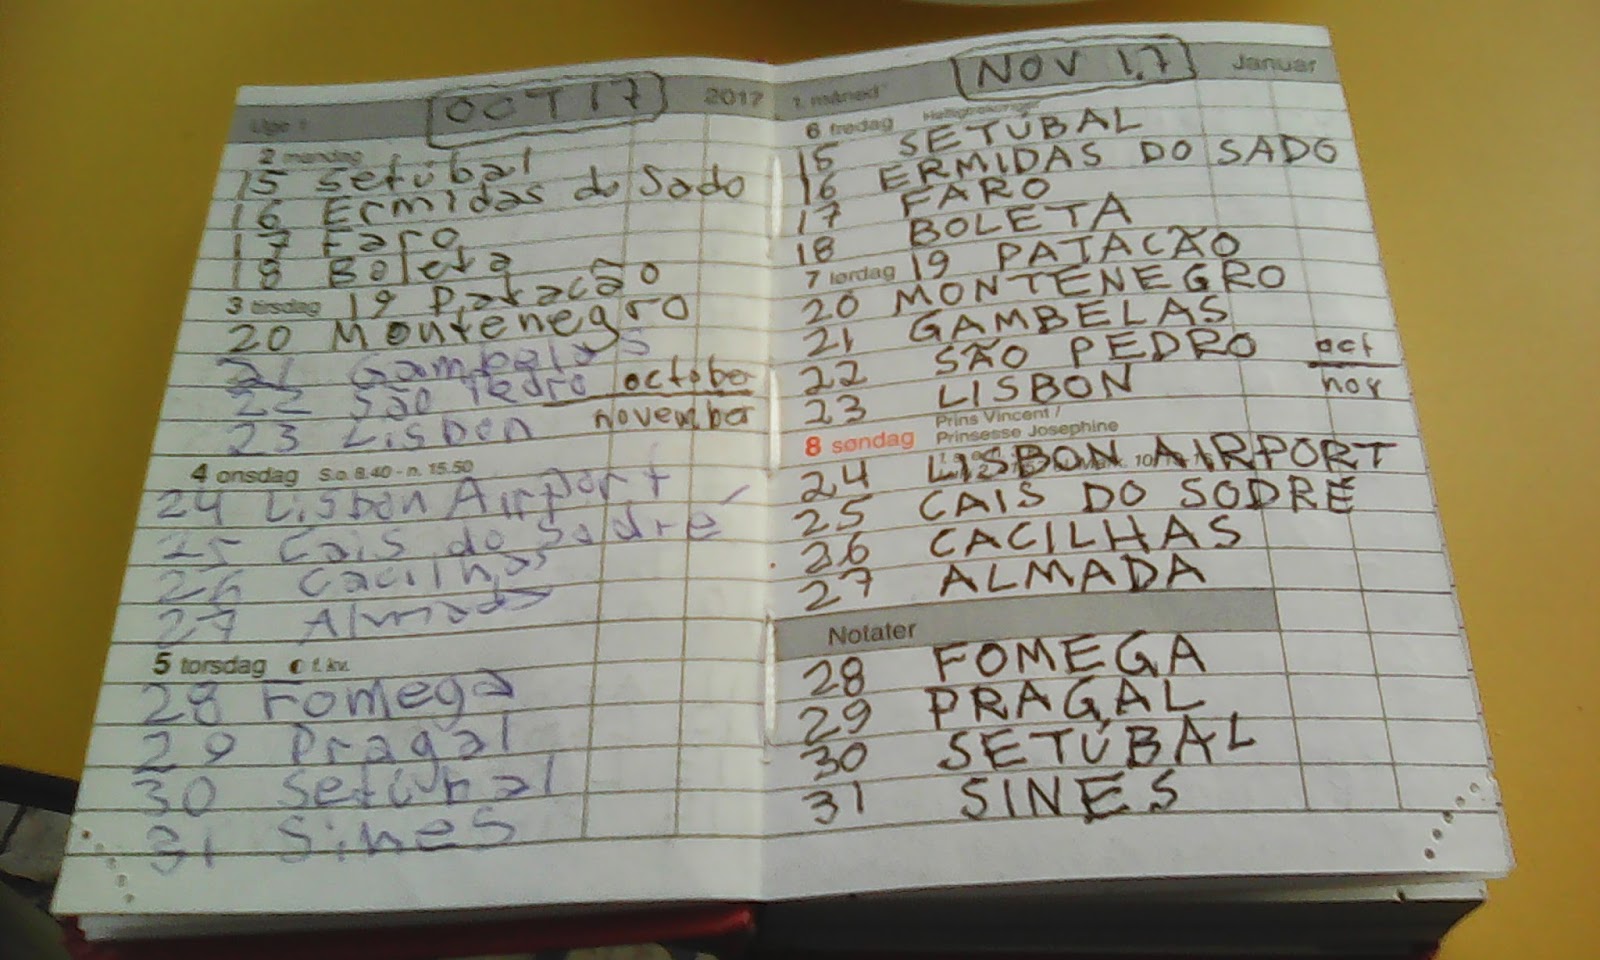 OCT 17
Uge 1 2017
2 mandag
15 Setúbal
16 Ermidas do Sado
17 Faro
18 Boleta
3 tirsdag 19 Patacão
20 Montenegro
21 Gambelas
22 São Pedro october
23 Lisbon november
4 onsdag S.o. 8.40 - n. 15.50
24 Lisbon Airport
25 Cais do Sodré
26 Cacilhas
27 Almada
5 torsdag f. kv.
28 Fomega
29 Pragal
30 Setúbal
31 Sines
NOV 17
1. måned Januar
6 fredag Helligtrekonger
15 SETÚBAL
16 ERMIDAS DO SADO
17 FARO
18 BOLETA
7 lørdag 19 PATACÃO
20 MONTENEGRO
21 GAMBELAS
22 SÃO PEDRO oct
23 LISBON nov
8 søndag Prins Vincent /
Prinsesse Josephine
24 LISBON AIRPORT
25 CAIS DO SODRÉ
26 CACILHAS
27 ALMADA
Notater
28 FOMEGA
29 PRAGAL
30 SETÚBAL
31 SINES